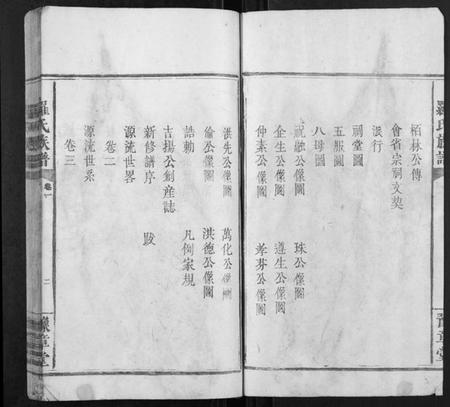 羅氏族譜
豫章堂
栢林公傳
會省宗祠文契
派行
祠堂圖
五服圖
八母圖
祝融公像圖 珠公像圖
企生公像圖 遵生公像圖
仲素公像圖 孝芬公像圖
洪先公像圖 萬化公像圖
倫公像圖 洪德公像圖
誥勅 凡例家規
吉揚公創産誌
新修譜序 跋
卷二
源流世畧
卷三
源流世系
羅氏族譜 卷一 二 豫章堂